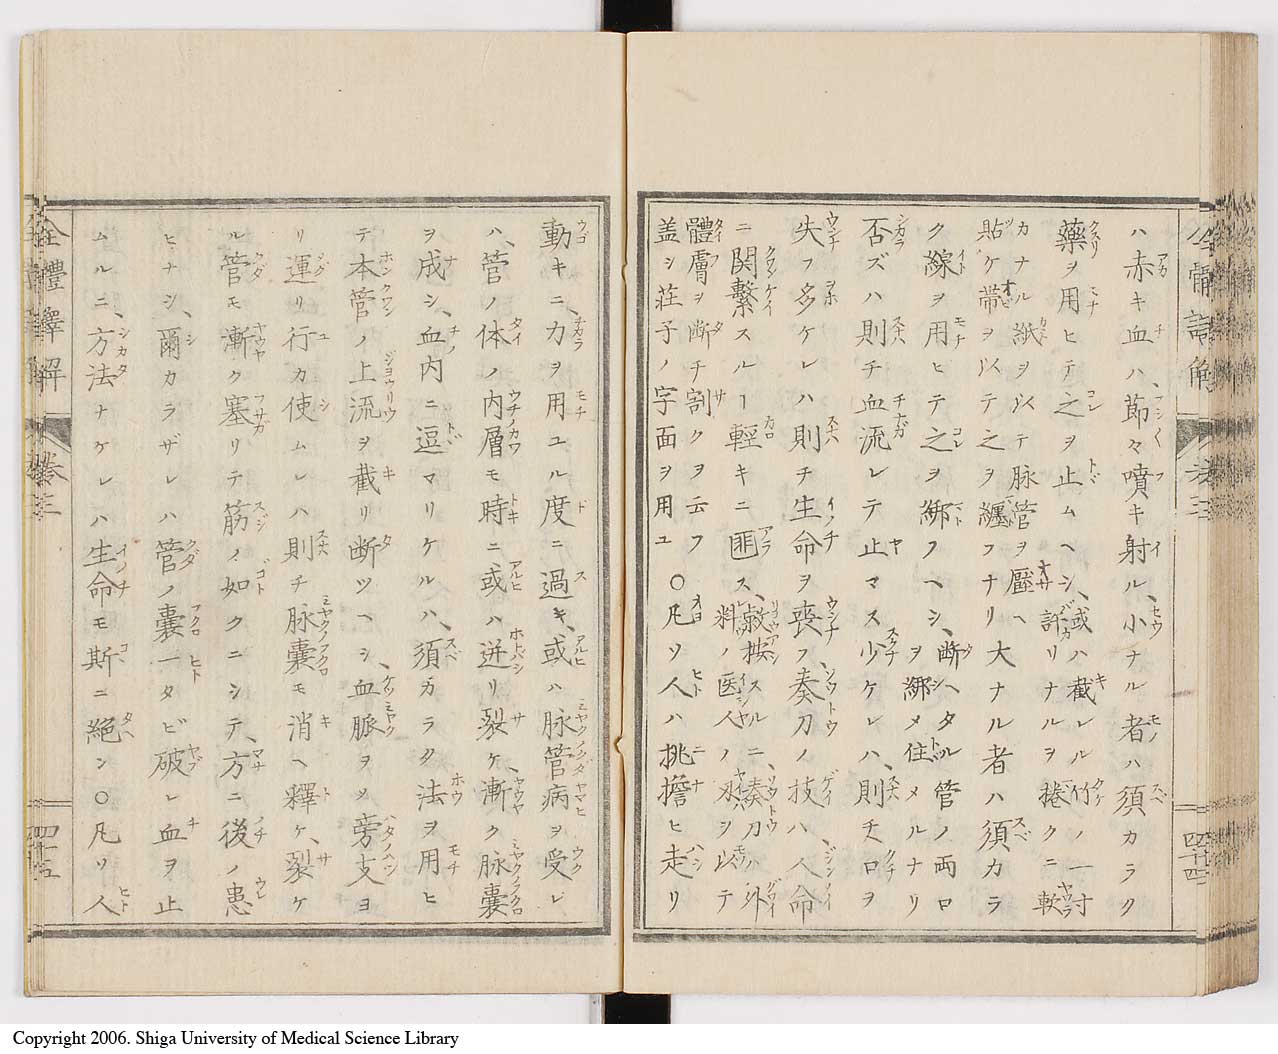 ハ赤キ血ハ、節々噴キ射ル、小ナル者ハ須カラク
藥ヲ用ヒテ之ヲ止ムヘシ、或ハ截レル竹ノ一寸
許リナルヲ捲クニ軟カナル紙ヲ以テ脉管ヲ壓ヘ
貼ケ帶ヲ以テ之ヲ纏フナリ大ナル者ハ須カラ
ク線ヲ用ヒテ之ヲ綁フヘシ、断ヘタル管ノ両口
ヲ綁メ住メルナリ
否ズハ則チ血流レテ止マス少ケレハ、則チ口ヲ
失フ多ケレハ則チ生命ヲ喪フ奏刀ノ技ハ人命
ニ関繫スルー輕キニ匪ス、
料ノ医人ノ刃ヲ以テ
體膚ヲ断チ割クヲ云フ
盖シ荘子ノ字面ヲ用ユ
○凡ソ人ハ挑擔ヒ走リ
全體註解 巻三 四十四
動キニ、力ヲ用ユル度ニ過キ、或ハ脉管病ヲ受レ
ハ、管ノ体ノ内層モ時ニ或ハ迸リ裂ケ、漸ク脉囊
ヲ成シ、血内ニ逗マリケルハ、須カラク法ヲ用ヒ
テ本管ノ上流ヲ截リ断ツヘシ、血脈ヲメ旁支ヨ
リ運リ行カ使ムレハ則チ脉囊モ消ヘ釋ケ、裂ケ
ル管モ漸ク塞リテ筋ノ如クニシテ、方ニ後ノ患
ヒナシ、爾カラザレハ管ノ囊一タビ破レ血ヲ止
ムルニ、方法ナケレハ生命モ斯ニ絕ン○凡ソ人
全體譯解 巻三 四十五
Copyright 2006. Shiga University of Medical Science Library